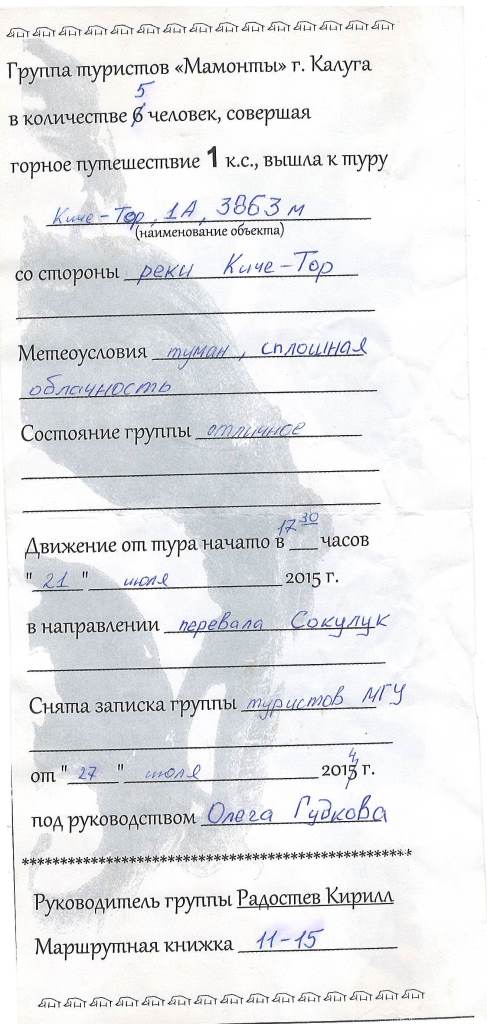 Группа туристов «Мамонты» г. Калуга
5
в количестве 6 человек, совершая
горное путешествие 1 к.с., вышла к туру
Киче-Тор, 1А, 3863 м
(наименование объекта)
со стороны реки Киче-Тор
Метеоусловия туман, сплошная
облачность
Состояние группы отличное
Движение от тура начато в 17 30 часов
"21" июля 2015 г.
в направлении перевала Сокулук
Снята записка группы туристов МГУ
4
от "27" июля 2015 г.
под руководством Олега Гудкова
****************************************************
Руководитель группы Радостев Кирилл
Маршрутная книжка 11-15